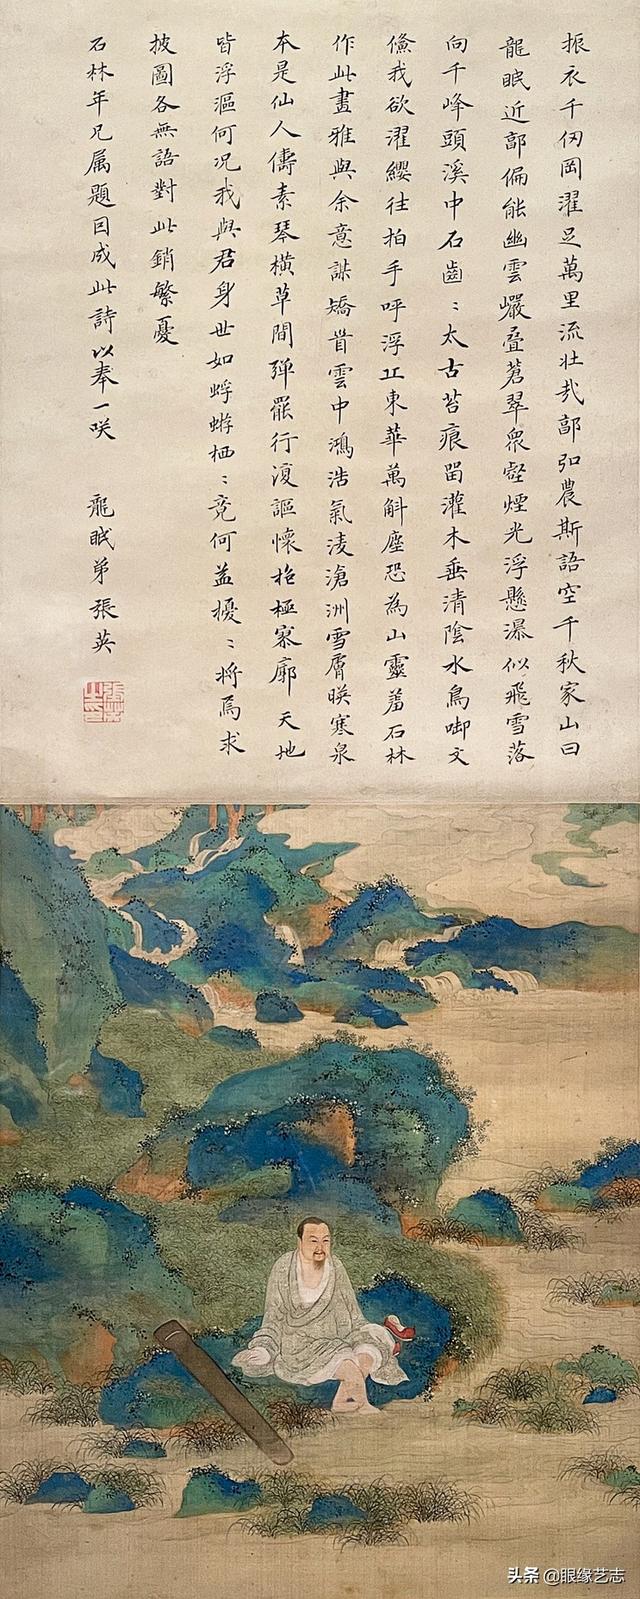 振衣千仞岡濯足萬里流壯哉郭弘農斯語空千秋家山曰
龍眠近郭偏能幽雲巘疊蒼翠衆壑煙光浮懸瀑似飛雪落
向千峰頭溪中石齒〻太古苔痕留灌木垂清陰水鳥啣文
鯈我欲濯纓往拍手呼浮丘東華萬斛塵恐為山靈羞石林
作此畫雅與余意謀矯首雲中鴻浩氣凌滄洲雪膚映寒泉
本是仙人儔素琴橫草間弹罷行復謳懷抱極寥廓天地
皆浮漚何況我與君身世如蜉蝣栖〻竟何益擾〻將焉求
披圖各無語對此銷繁憂
石林年兄属題因成此詩以奉一咲 龍眠弟張英
張英之印
头条 @眼缘艺志